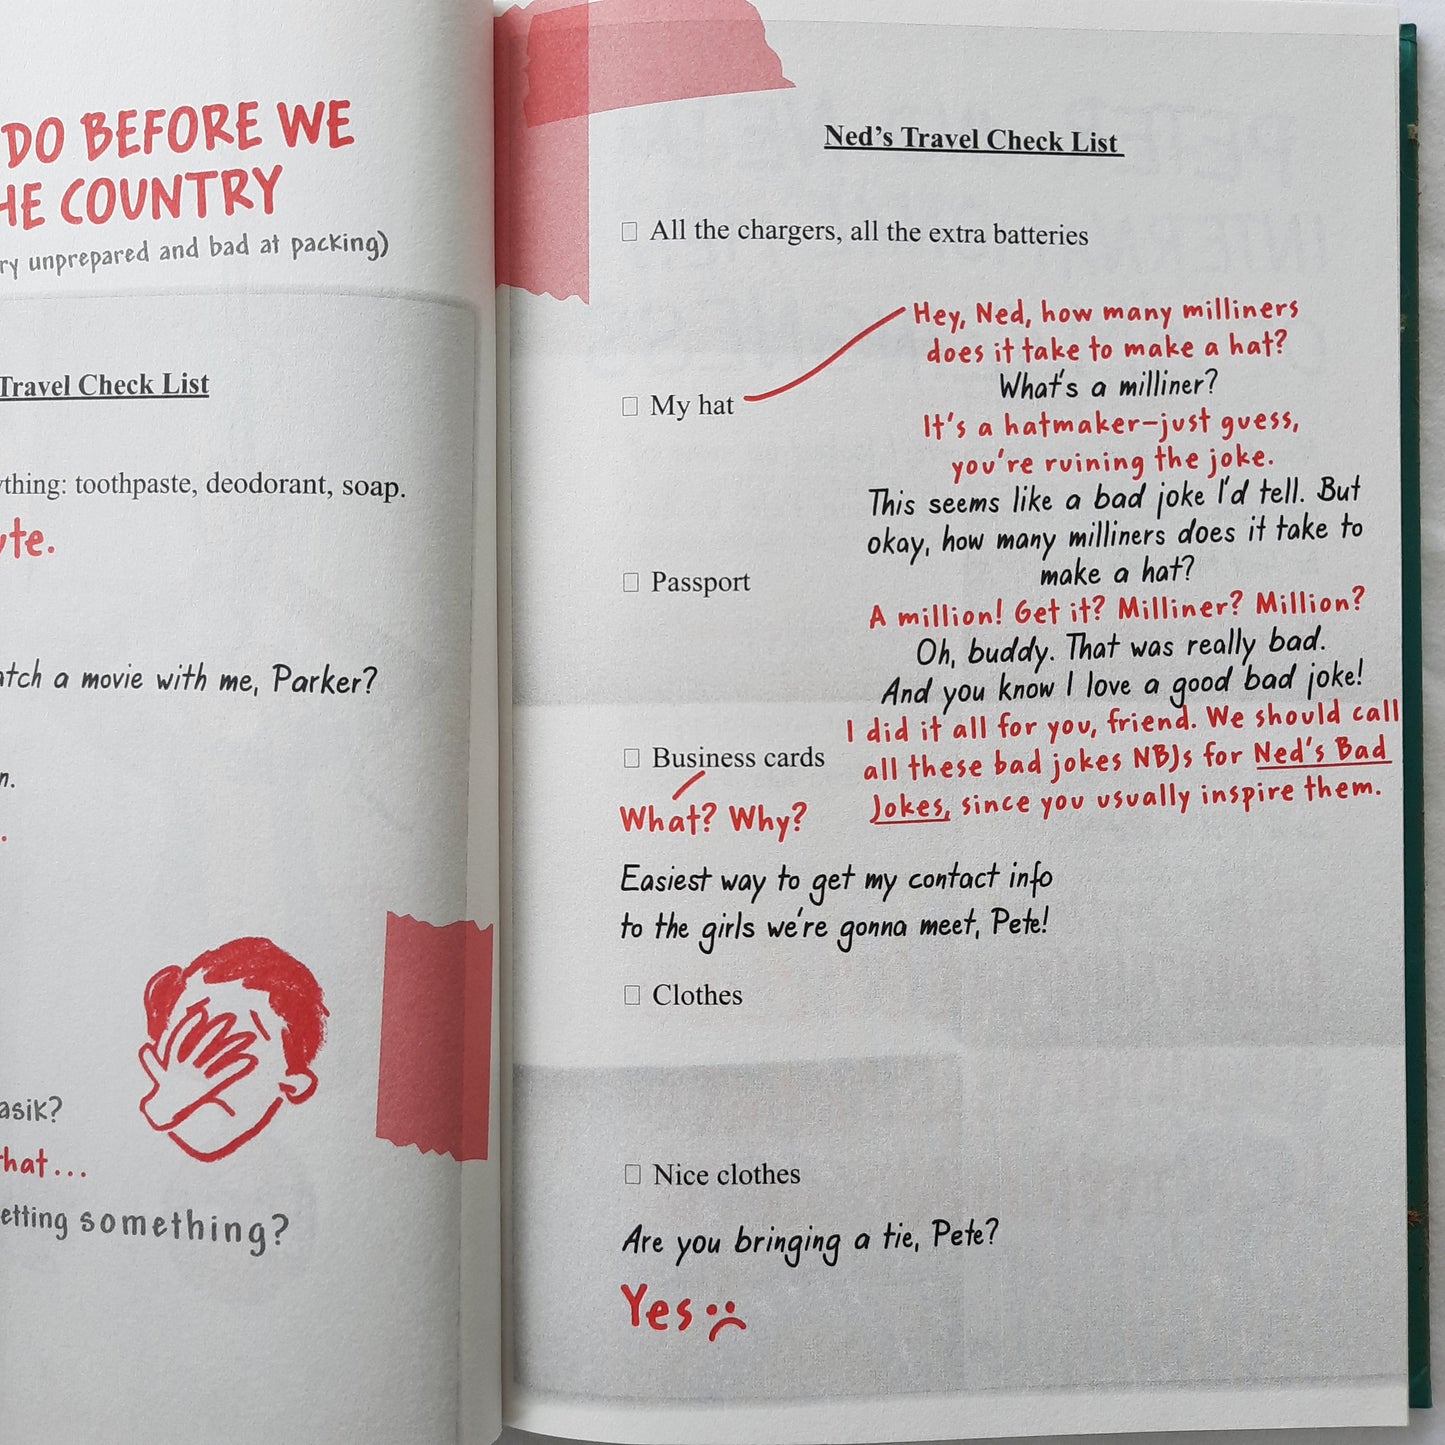 DO BEFORE WE
HE COUNTRY
unprepared and bad at packing)
Travel Check List
toothpaste, deodorant, soap.
a movie with me, Parker?
something?
Ned's Travel Check List
□ All the chargers, all the extra batteries
Hey, Ned, how many milliners
does it take to make a hat?
What's a milliner?
□ My hat
It's a hatmaker—just guess,
you're ruining the joke.
This seems like a bad joke I'd tell. But
okay, how many milliners does it take to
make a hat?
□ Passport
A million! Get it? Milliner? Million?
Oh, buddy. That was really bad.
And you know I love a good bad joke!
I did it all for you, friend. We should call
all these bad jokes NBJs for Ned's Bad
Jokes, since you usually inspire them.
□ Business cards
What? Why?
Easiest way to get my contact info
to the girls we're gonna meet, Pete!
□ Clothes
□ Nice clothes
Are you bringing a tie, Pete?
Yes